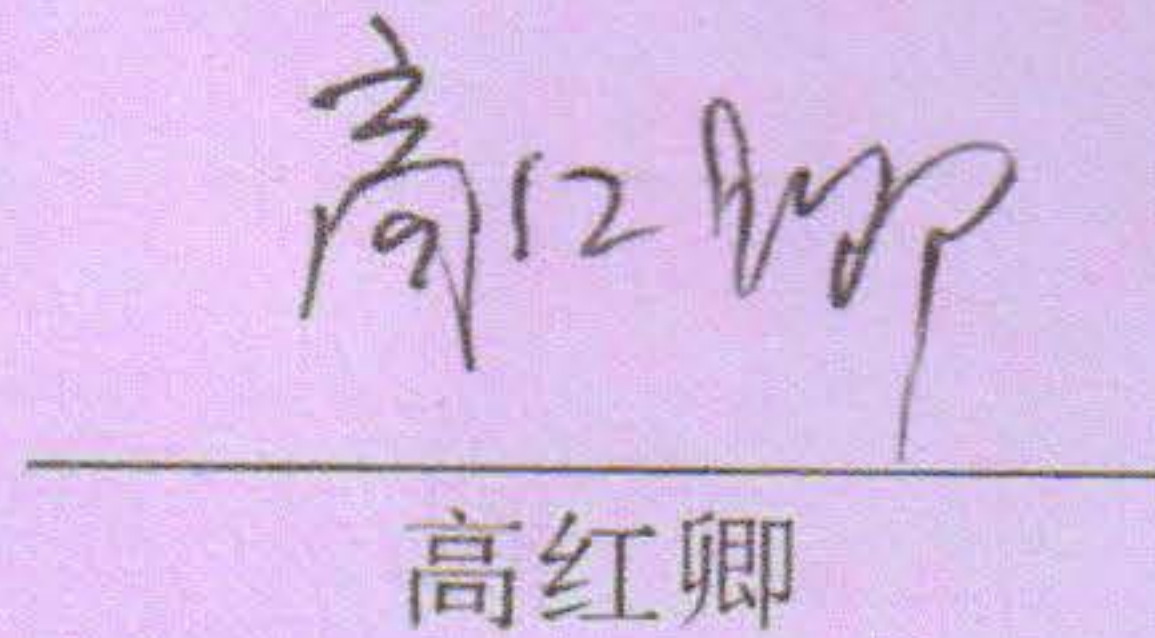 高红卿
高红卿